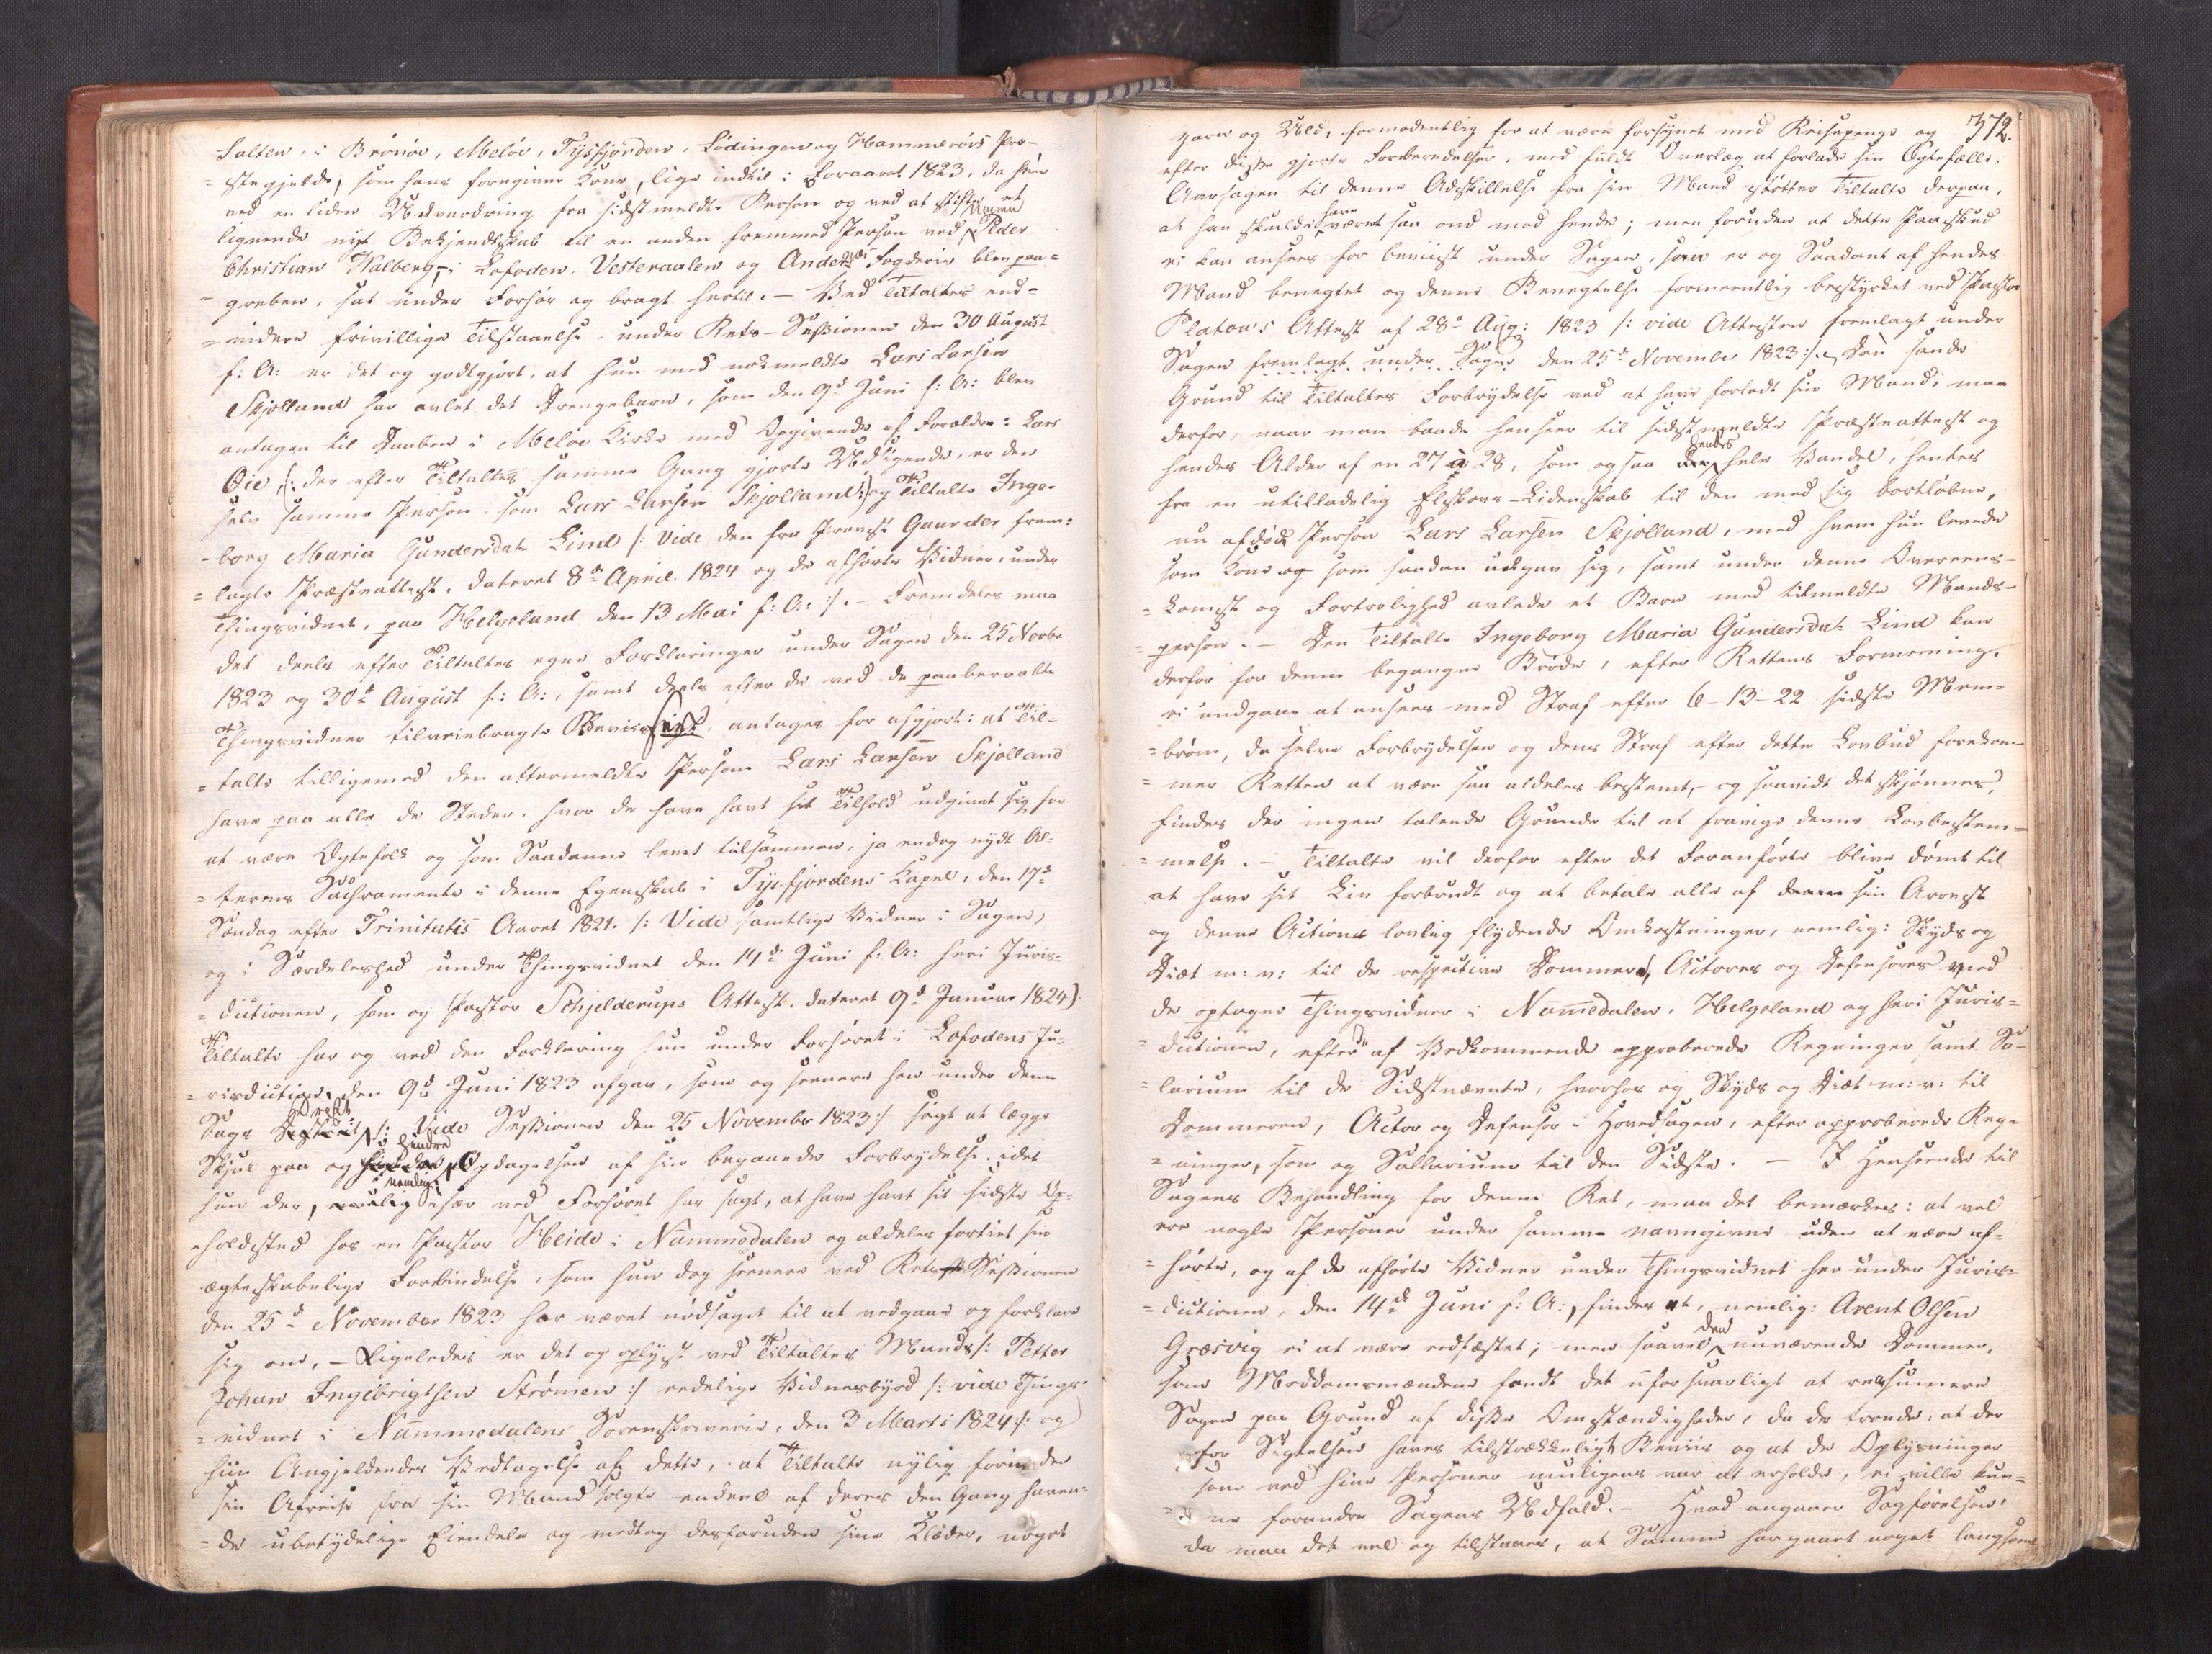 Salten, i Brønøe, Meløe, Tysfjorden, Lødingen og Hammerøes Præ-
=stegjelde, som hans foregivne Kone, lige indtil i Foraaret 1823, da hun
ved en liden Udvandring fra sidstmeldte Person og ved at stifte et
lignende nyt Bekjendtskab til en anden fremmed Person ved Navn Peder
Christian Walberg, i Lofoden, Vesteraalen og Andenæs Fogderie blev paa=
=greben, sat under Forhør og bragt hertil. — Ved Tiltaltes end=
=videre frivillige Tilstaaelse under Rets-Sessionen den 30 August
f: A: er det og godtgjort, at hun med nokmeldte Lars Larsen
Skjolland har avlet det Drengebarn, som den 9de Juni f: A: blev
antagen til Daaben i Meløe Kirke med Opgivende af Forældre: Lars
Øie, (: der efter Tiltaltes samme Gang gjorte Udsigende, er den
selv samme Person som Lars Larsen Skjolland :) og Tiltalte Inge-
-borg Maria Gundersdatr Lind /: Vide den fra Provst Gaarder frem=
=lagte Præsteattest, dateret 8de April 1824 og de afhørte Vidner, under
Thingsvidnet, paa Helgeland den 13 Mai f: A: :/. — Fremdeles maa
det deels efter Tiltaltes egne Forklaringer under Sagen den 25 Novbr
1823 og 30te August f: A:, samt deels efter de ved de paaberaabte
Thingsvidner tilveiebragte Beviisligt, antages for afgjort: at Til=
=talte tilligemed den oftermeldte Person Lars Larsen Skjolland
have paa alle de Steder, hvor de have havt sit Tilhold udgivet sig for
at være Ægtefolk og som Saadanne levet tilsammen, ja endog nydt Al=
=terens Sachramente i denne Egenskab i Tysfjordens Kapel, den 17de
Søndag efter Trinitatis Aaret 1821. /: Vide samtlige Vidner i Sagen,
og i Særdeleshed under Thingsvidnet den 14de Juni f: A: heri Juris=
=dictionen, som og Pastor Schjelderups Attest dateret 9de Januar 1824).
Tiltalte har og ved den Forklaring hun under Forhøret i Lofodens Ju=
=risdiction den 9de Juni 1823 afgav, som og senere hen under denne
Sags /: Vide Sessionen den 25 November 1823 :/ søgt at lægge
Skjul paa og hindre Opdagelsen af sin begaaende Forbrydelse, idet
hun der, nemlig især ved Forhøret har sagt, at have havt sit sidste Op=
=holdsted hos en Pastor Heide i Nammedalen og aldeles fortiet sin
ægteskabelige Forbindelse, som hun dog senere ved Rets-Sessionen
den 25de November 1823 har været nødsaget til at vedgaae og forklare
sig om, — Ligeledes er det og oplyst ved Tiltaltes Mands /: Petter
Johan Ingebrigtsen Strømen :/ eedelige Vidnesbyrd /: vide Tings-
=vidnet i Nammedalens Sorenskriverie, den 3 Marts 1824 :/: og
hiin Angjeldendes Vedtagelse af dette, at Tiltalte nylig forinden
sin Afreise fra sin Mand solgte endeel af deres den Gang haven=
=de ubetydelige Eiendele og medtog desforuden sine Klæder, noget
372.
garn og Uld, formodentlig for at være forsynet med Reisepenge og
efter disse gjorte Forberedelser, med fuldt Overlæg at forlade sin Ægtefælle.
Aarsagen til denne Adskillelse fra sin Mand støtter Tiltalte derpaa,
at han skulde have været saa ond mod hende; men foruden at dette Paaskud
ei kan ansees for beviist under Sagen, saa er og Saadant af hendes
Mand benegtet og denne Benegtelse formeentlig bestyrket ved Pastor
Platou's Attest af 28de Aug: 1823 /: vide Attesten fremlagt under
Sagen fremlagt under Sagen den 25de November 1823 :/. Den sande
Grund til Tiltaltes Forbrydelse ved at have forladt sin Mand, maa
derfor, naar man baade henseer til sidstmeldte Præsteattest og
hendes Alder af en 27 à 28, som ogsaa hendes hele Vandel, hentes
fra en utilladelig Elskovs-Lidenskab til den med sig bortløbne,
nu afdøde Person Lars Larsen Skjolland, med hvem hun levede
som Kone og som saadan udgav sig, samt under denne Overeens-
=komst og Fortrolighed avlede et Barn med titmeldte Mands-
=person. — Den Tiltalte Ingeborg Maria Gundersdatr Lind kan
derfor for denne begangne Brøde, efter Rettens Formening,
ei undgaae at ansees med Straf efter 6-13-22 sidste Mem-
=brum, da selve Forbrydelsen og dens Straf efter dette Lovbud forekom-
=mer Retten at være saa aldeles bestemt, og saavidt det skjønnes,
findes der ingen talende Grunde til at fravige denne Lovbestem-
=melse. — Tiltalte vil derfor efter det Foranførte blive dømt til
at have sit Liv forbrudt og at betale alle af sin Arrest
og denne Action lovlig flydende Omkostninger, nemlig: Skyds og
Diæt m: v: til de respective Dommere, Actorer og Defensores ved
de optagne Thingsvidner i Namedalen, Helgeland og heri Juris=
=dictionen, efter af Vedkommende approberede Regninger samt Sa-
=larium til de Sidstnævnte, hvorhos og Skyds og Diæt m: v: til
Dommeren, Actor og Defensor i Hovedsagen, efter approberede Reg-
=ninger, som og Sallarium til den Sidste. — I Henseende til
Sagens Behandling for denne Ret, maa det bemærkes: at vel
ere nogle Personer under samme navngivne uden at være af-
=hørte, og af de afhørte Vidner under Thingsvidnet her under Juris=
=dictionen, den 14de Juni f: A:, findes et, nemlig: Arent Olsen
Græsvig ei at være eedfæstet; men saavel den nuværende Dommer,
som Meddomsmændene fandt det uforsvarligt at reassumere
Sagen paa Grund af disse Omstændigheder, da de troede, at der
for Sigtelsen haves tilstrækkeligt Beviis og at de Oplysninger
som ved hine Personer muligens var at erholde, ei ville kun=
=ne forandre Sagens Udfald. — Hvad angaaer Sagførelsen,
da maa det vel og tilstaaes, at Samme har gaaet noget langsomt